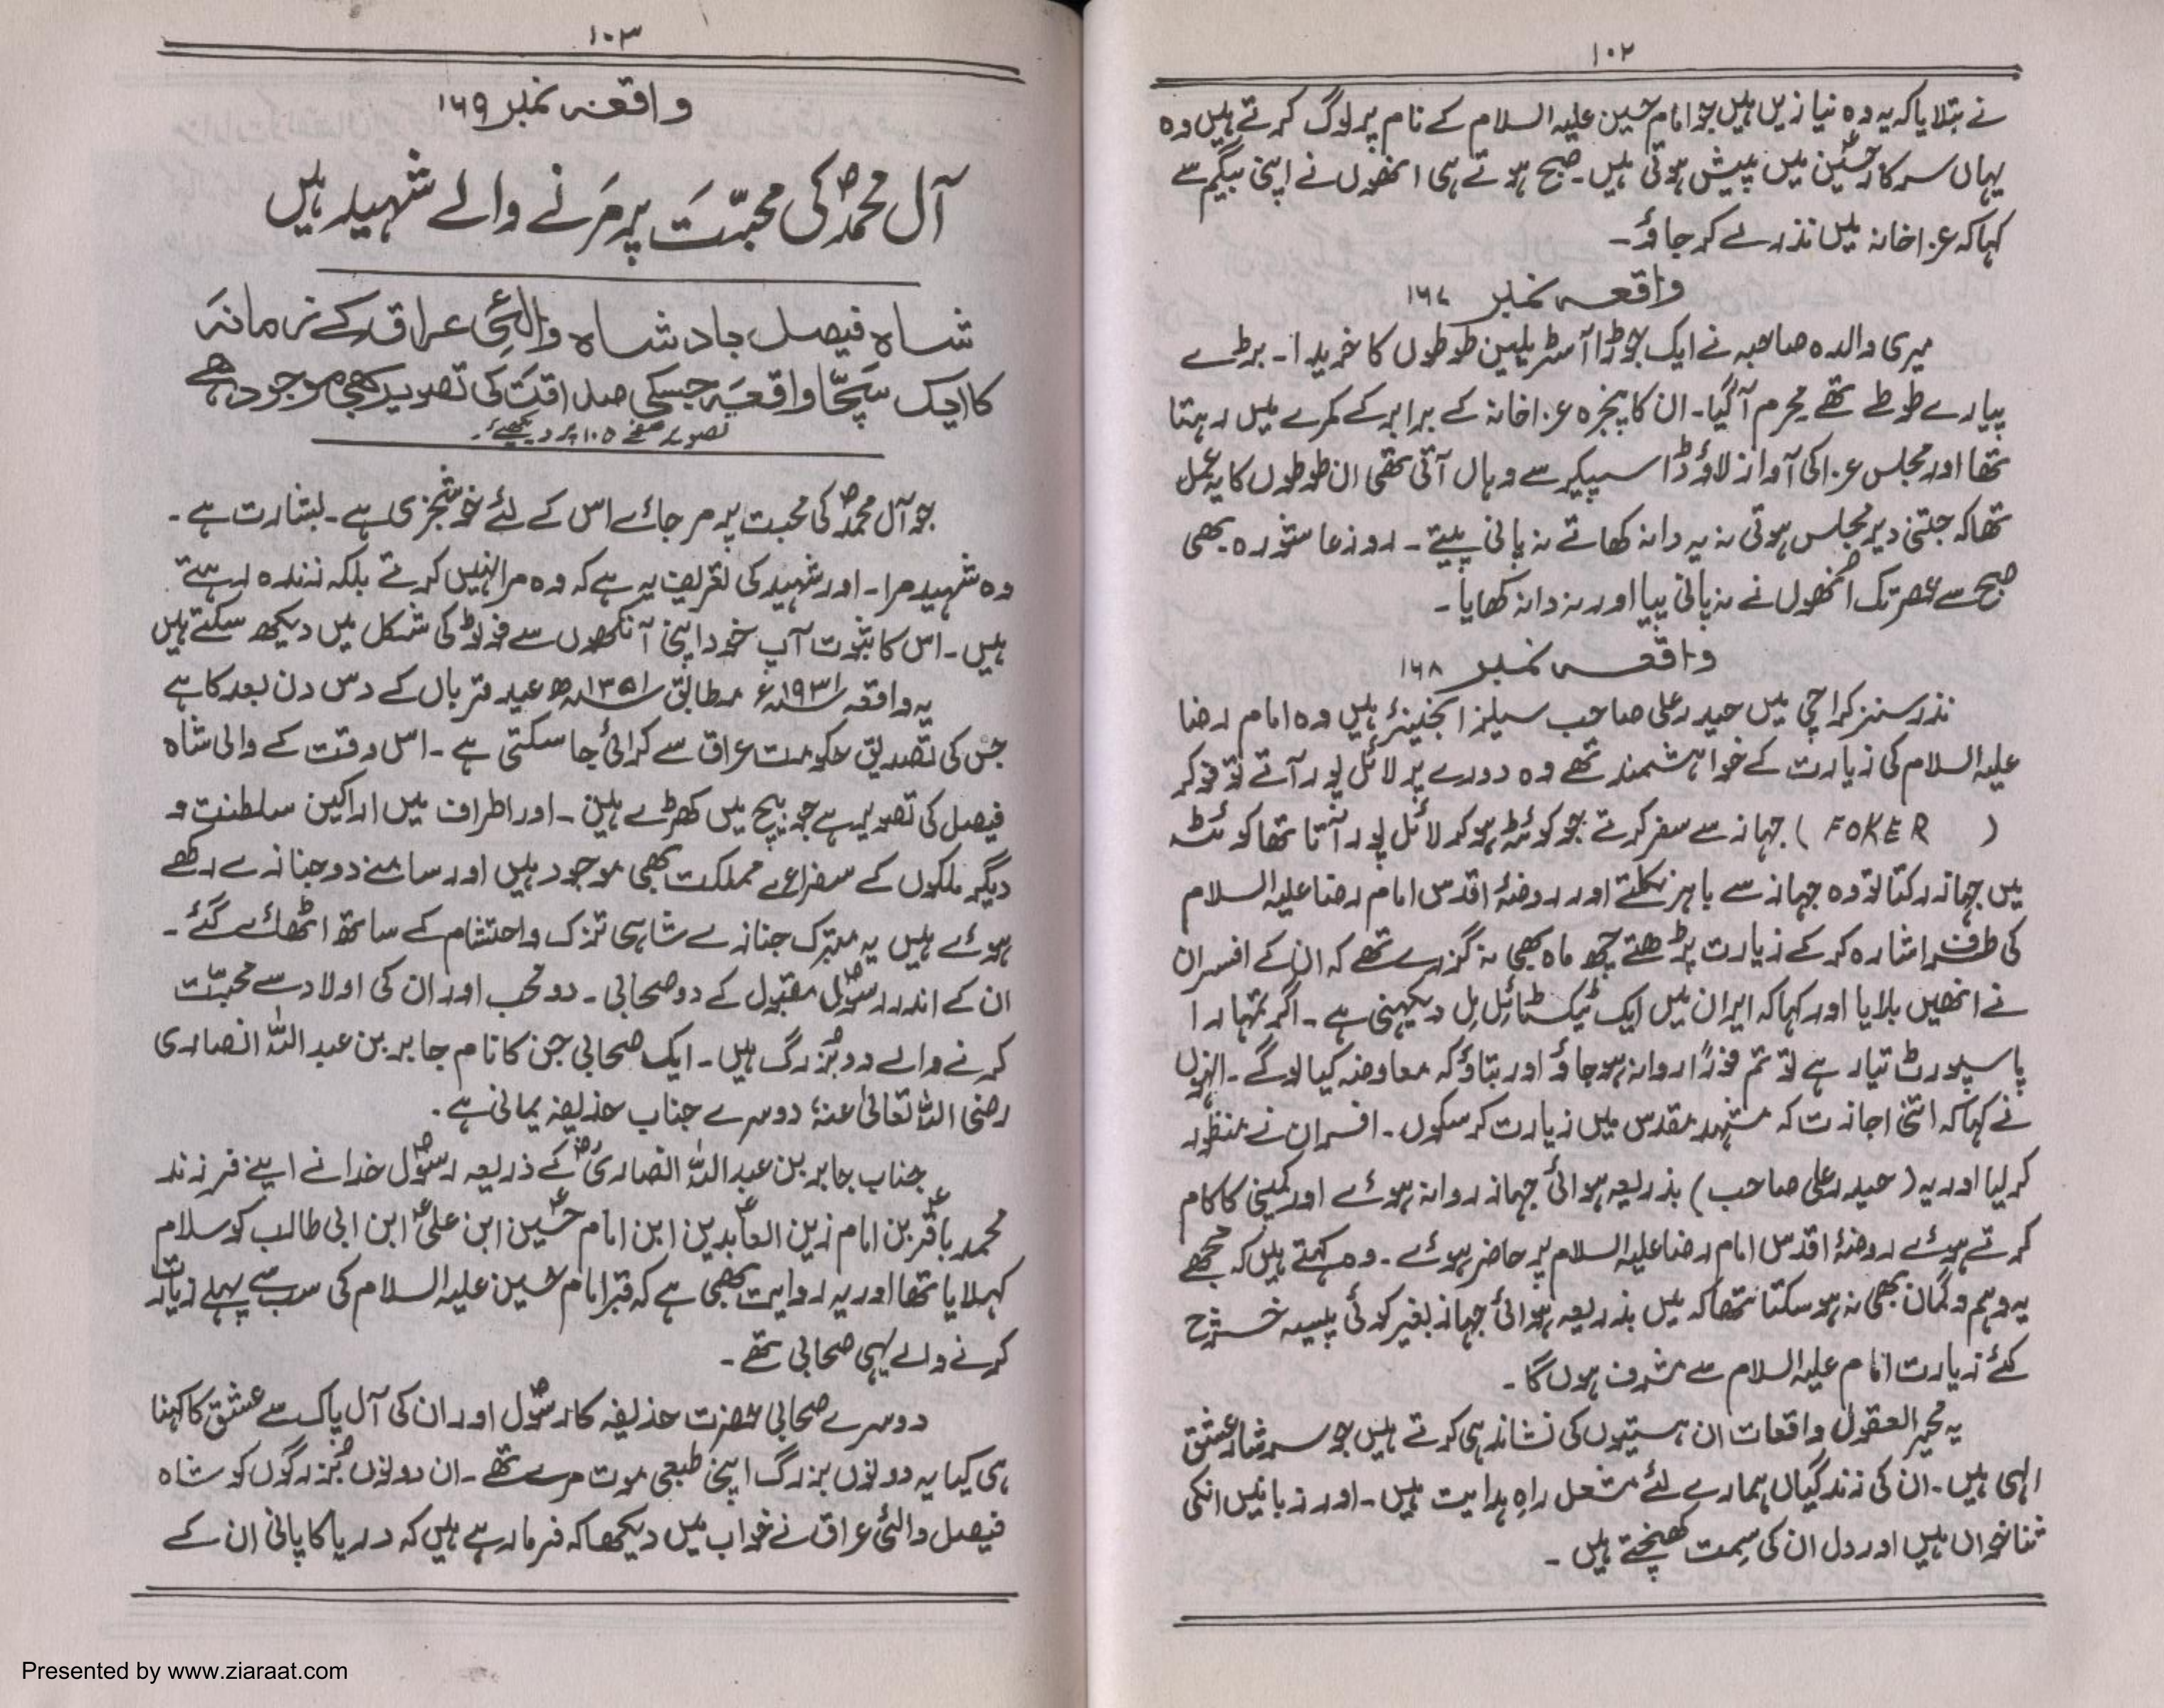 ۱۰۲
نے بتلایا کہ یہ وہ نیازیں ہیں جو امام حسین علیہ السلام کے نام پر لوگ کرتے ہیں وہ
یہاں سرکار حسینؑ میں پیش ہوتی ہیں۔ صبح ہوتے ہی انھوں نے اپنی بیگم سے
کہا کہ عزاخانہ میں نذر لے کر جاؤ۔
واقعہ نمبر ۱۶۷
میری والدہ صاحبہ نے ایک جوڑا آسٹریلین طوطوں کا خریدا۔ بڑے
پیارے طوطے تھے محرم آگیا۔ ان کا پنجرہ عزاخانہ کے برابر کے کمرے میں رہتا
تھا اور مجلس عزا کی آواز لاؤڈ اسپیکر سے وہاں آتی تھی ان طوطوں کا یہ عمل
تھا کہ جتنی دیر مجلس ہوتی نہ یہ دانہ کھاتے نہ پانی پیتے۔ روز عاشورہ بھی
صبح سے عصر تک انھوں نے نہ پانی پیا اور نہ دانہ کھایا۔
واقعہ نمبر ۱۶۸
نذر سنز کراچی میں حیدر علی صاحب سیلز انجینئر ہیں وہ امام رضا
علیہ السلام کی زیارت کے خواہشمند تھے وہ دورے پر لائل پور آتے تو فوکر
( FOKER ) جہاز سے سفر کرتے جو کوئٹہ ہو کر لائل پور آتا تھا کوئٹہ
میں جہاز رکتا تو وہ جہاز سے باہر نکلتے اور روضۂ اقدس امام رضا علیہ السلام
کی طرف اشارہ کر کے زیارت پڑھتے چھ ماہ بھی نہ گزرے تھے کہ ان کے افسران
نے انھیں بلایا اور کہا کہ ایران میں ایک ٹیکسٹائل مل دیکھنی ہے۔ اگر تمہارا
پاسپورٹ تیار ہے تو تم فوراً روانہ ہو جاؤ اور بتاؤ کہ معاوضہ کیا لوگے۔ انہوں
نے کہا کہ اتنی اجازت کہ مشہد مقدس میں زیارت کر سکوں۔ افسران نے منظور
کر لیا اور یہ (حیدر علی صاحب) بذریعہ ہوائی جہاز روانہ ہوئے اور کمپنی کا کام
کرتے ہوئے روضۂ اقدس امام رضا علیہ السلام پر حاضر ہوئے۔ وہ کہتے ہیں کہ مجھے
یہ وہم و گمان بھی نہ ہو سکتا تھا کہ میں بذریعہ ہوائی جہاز بغیر کوئی پیسہ خرچ
کئے زیارت امام علیہ السلام سے مشرف ہوں گا۔
یہ محیر العقول واقعات ان ہستیوں کی نشاندہی کرتے ہیں جو سرشار عشق
الٰہی ہیں۔ ان کی زندگیاں ہمارے لئے مشعل راہِ ہدایت ہیں۔ اور زبانیں انکی
ثنا خواں ہیں اور دل ان کی سمت کھنچتے ہیں۔
۱۰۳
واقعہ نمبر ۱۶۹
آل محمدؐ کی محبّت پر مَرنے والے شہید ہیں
شاہ فیصل بادشاہ والئی عراق کے زمانہ
کا ایک سچّا واقعہ جسکی صداقت کی تصویر بھی موجود ہے
تصویر صفحے ۱۰۵ پر دیکھیے۔
جو آل محمدؐ کی محبت پر مر جائے اس کے لئے خوشخبری ہے۔ بشارت ہے۔
وہ شہید مرا۔ اور شہید کی تعریف یہ ہے کہ وہ مرا نہیں کرتے بلکہ زندہ رہتے
ہیں۔ اس کا ثبوت آپ خود اپنی آنکھوں سے فوٹو کی شکل میں دیکھ سکتے ہیں
یہ واقعہ ۱۹۳۱ء مطابق ۱۳۵۱ھ عید قرباں کے دس دن بعد کا ہے
جس کی تصدیق حکومت عراق سے کرائی جا سکتی ہے۔ اس وقت کے والی شاہ
فیصل کی تصویر ہے جو بیچ میں کھڑے ہیں۔ اور اطراف میں اراکین سلطنت و
دیگر ملکوں کے سفرائے مملکت بھی موجود ہیں اور سامنے دو جنازے رکھے
ہوئے ہیں یہ متبرک جنازے شاہی تزک و احتشام کے ساتھ اٹھائے گئے۔
ان کے اندر رسولؐ مقبول کے دو صحابی۔ دو محب اور ان کی اولاد سے محبّت
کرنے والے دو بزرگ ہیں۔ ایک صحابی جن کا نام جابر بن عبداللہ انصاری
رضی اللہ تعالیٰ عنہ؛ دوسرے جناب حذیفہ یمانی ہے۔
جناب جابر بن عبداللہ انصاریؓ کے ذریعہ رسولؐ خدا نے اپنے فرزند
محمد باقرؑ بن امام زین العابدینؑ ابن امام حسینؑ ابن علیؑ ابن ابی طالب کو سلام
کہلایا تھا اور یہ روایت بھی ہے کہ قبر امام حسین علیہ السلام کی سب سے پہلے زیارت
کرنے والے یہی صحابی تھے۔
دوسرے صحابی حضرت حذیفہ کا رسولؐ اور ان کی آل پاک سے عشق کا کہنا
ہی کیا یہ دونوں بزرگ اپنی طبعی موت مرے تھے۔ ان دونوں بزرگوں کو شاہ
فیصل والئی عراق نے خواب میں دیکھا کہ فرما رہے ہیں کہ دریا کا پانی ان کے
Presented by www.ziaraat.com